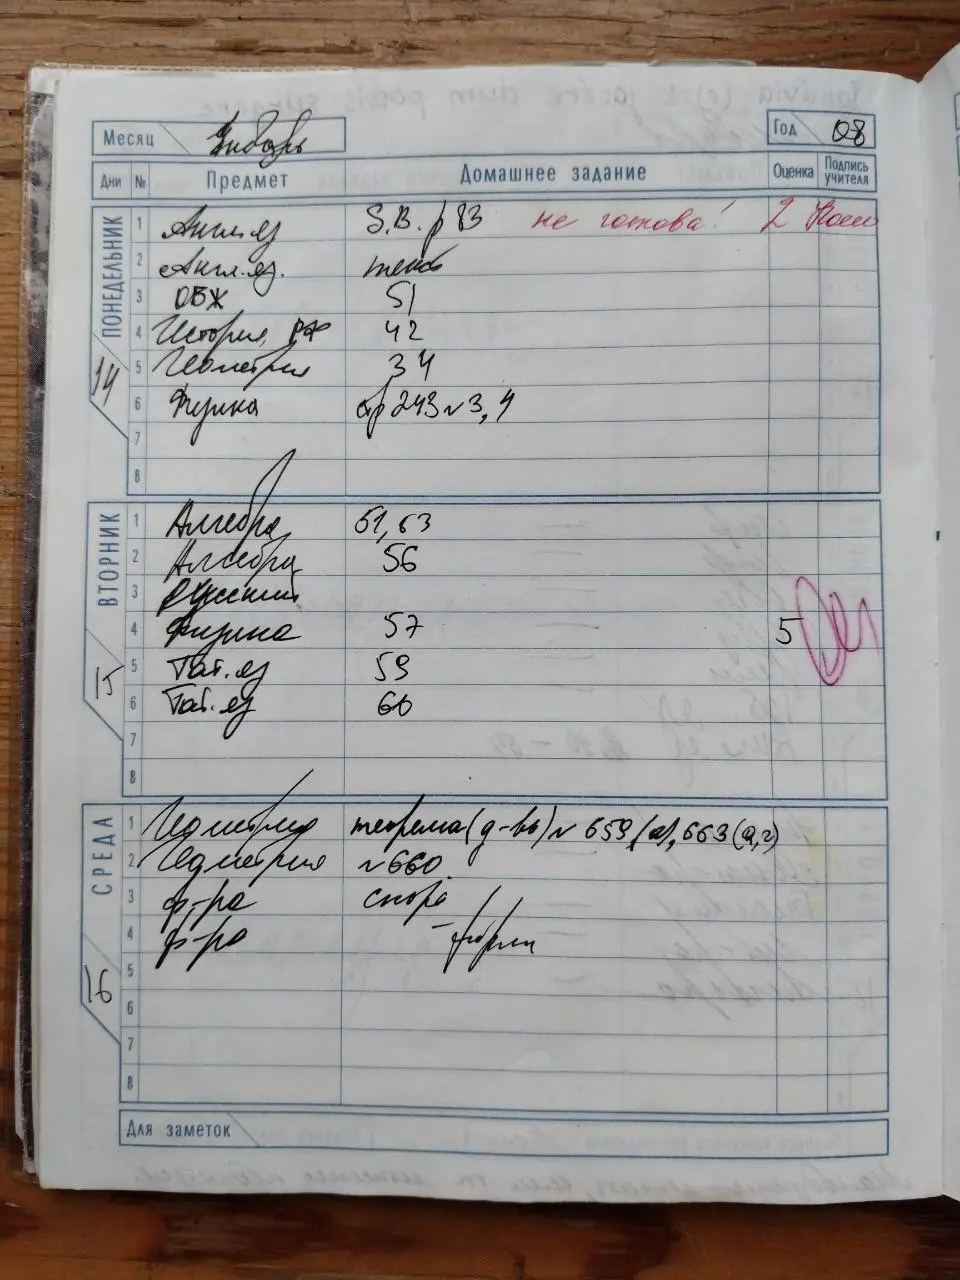 Месяц Январь Год 08
Дни № Предмет Домашнее задание Оценка Подпись учителя
ПОНЕДЕЛЬНИК 14
1 Англ.яз S.B. p 83 не готова! 2
2 Англ.яз.
3 ОБЖ 51
4 История, РФ 42
5 Геометрия 34
6 Физика стр 243 № 3, 4
7
8
ВТОРНИК 15
1 Алгебра 61, 63
2 Алгебра 56
3 Русский
4 Физика 57 5
5 Тат.яз 59
6 Тат.яз 60
7
8
СРЕДА 16
1 Геометрия теорема (д-во) № 659 (а), 663 (а,г)
2 Геометрия № 660
3 ф-ра спорт
4 ф-ра форма
5
6
7
8
Для заметок